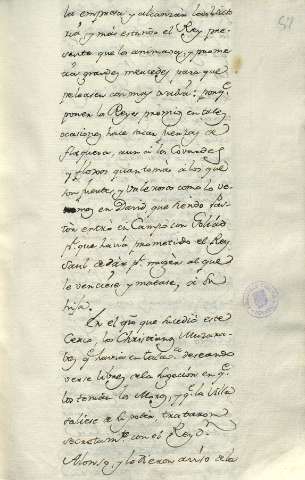 la empresa, y alcanzan la victo
ria, y más estando el Rey pre
sente que los animaba, y prome
tia grandes mercedes para que
peleasen con mas
poner los Reyes premio en tales
ocasiones hace sacar fuerzas de
flaquera, aun á los Covardes,
y floxos quanto mas á los que
son fuertes, y valerosos como lo ve
mos en David, que siendo Pas
tór entró en Campo con Goliád
pr. que havia prometido el Rey
Saul de dár pr. muger al que
le venciese y matase, á su
hija.
En el que sucedió este
Cerco, los Christianos Muzara
bes qe. havia en deseando
verse libres de la sugecion en qe.
los tenian los Moros, y qe. la Villa
se trataron
secretamte. con el Rey Dn.
Alonso, y le dieron aviso de la